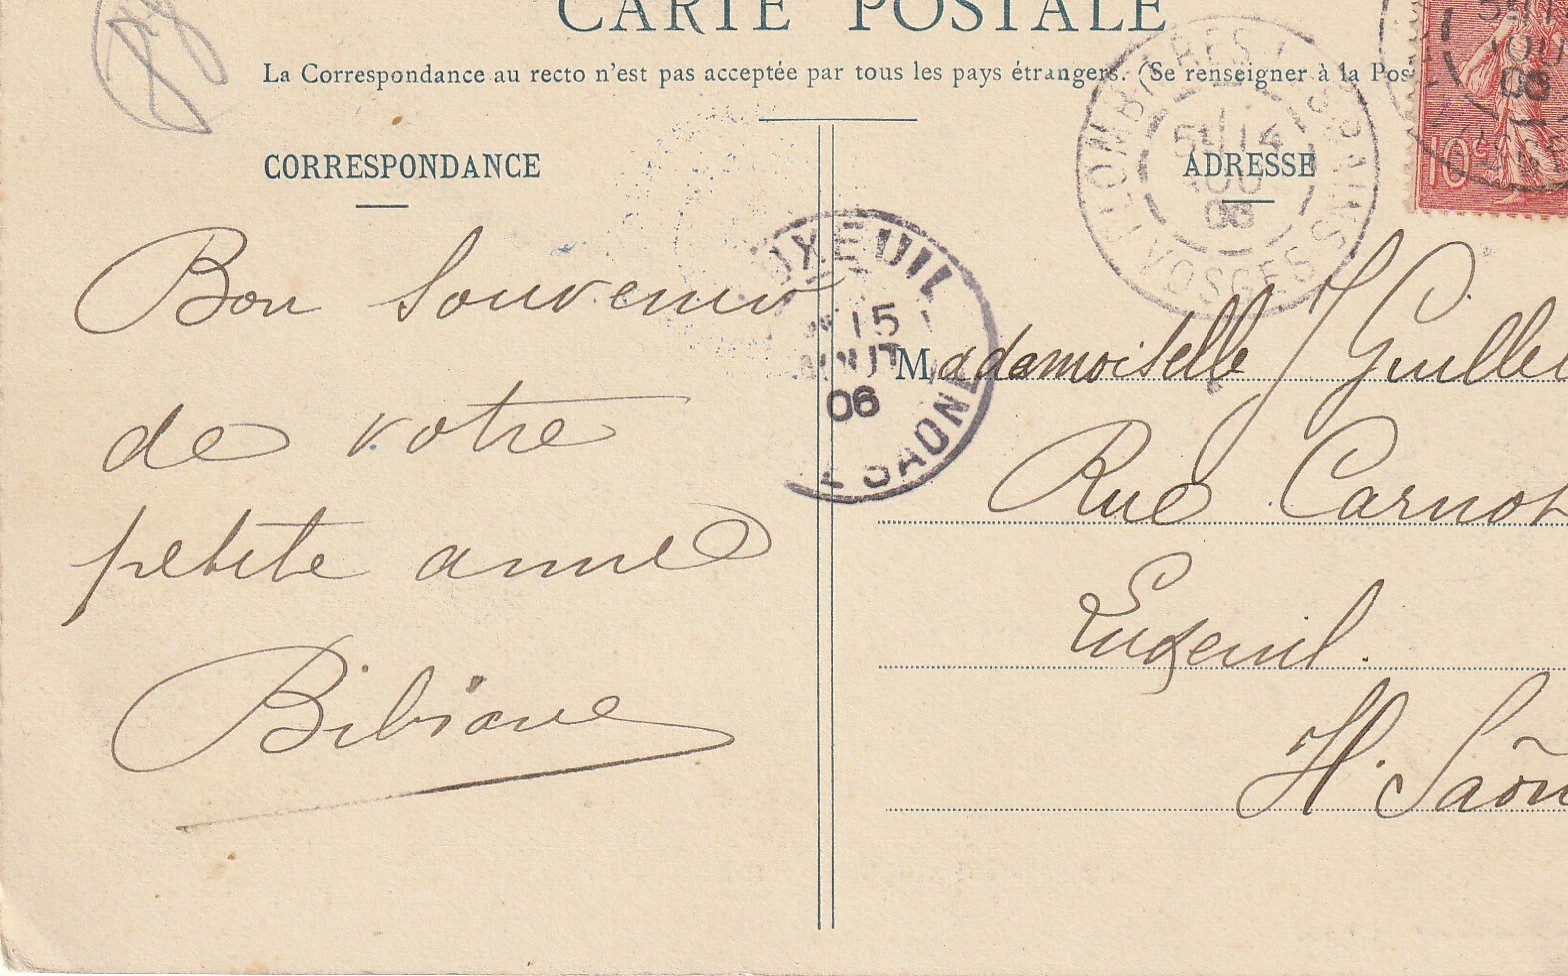 CARTE POSTALE
La Correspondance au recto n'est pas acceptée par tous les pays étrangers. (Se renseigner à la Pos
CORRESPONDANCE
ADRESSE
PLOMBIERES
VOSGES
14
06
10c
UXEUIL
15
AOUT
06
SAONE
Bon Souvenir
de votre
petite amie
Bibiane
Mademoiselle J Guille
Rue Carnot
Luxeuil.
H. Saôn